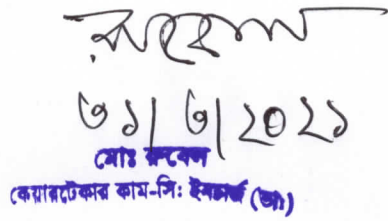 রুবেল
৩১/৩/২০২১
মোঃ রুবেল
কেয়ারটেকার কাম-সি: ইনচার্জ (ভাঃ)